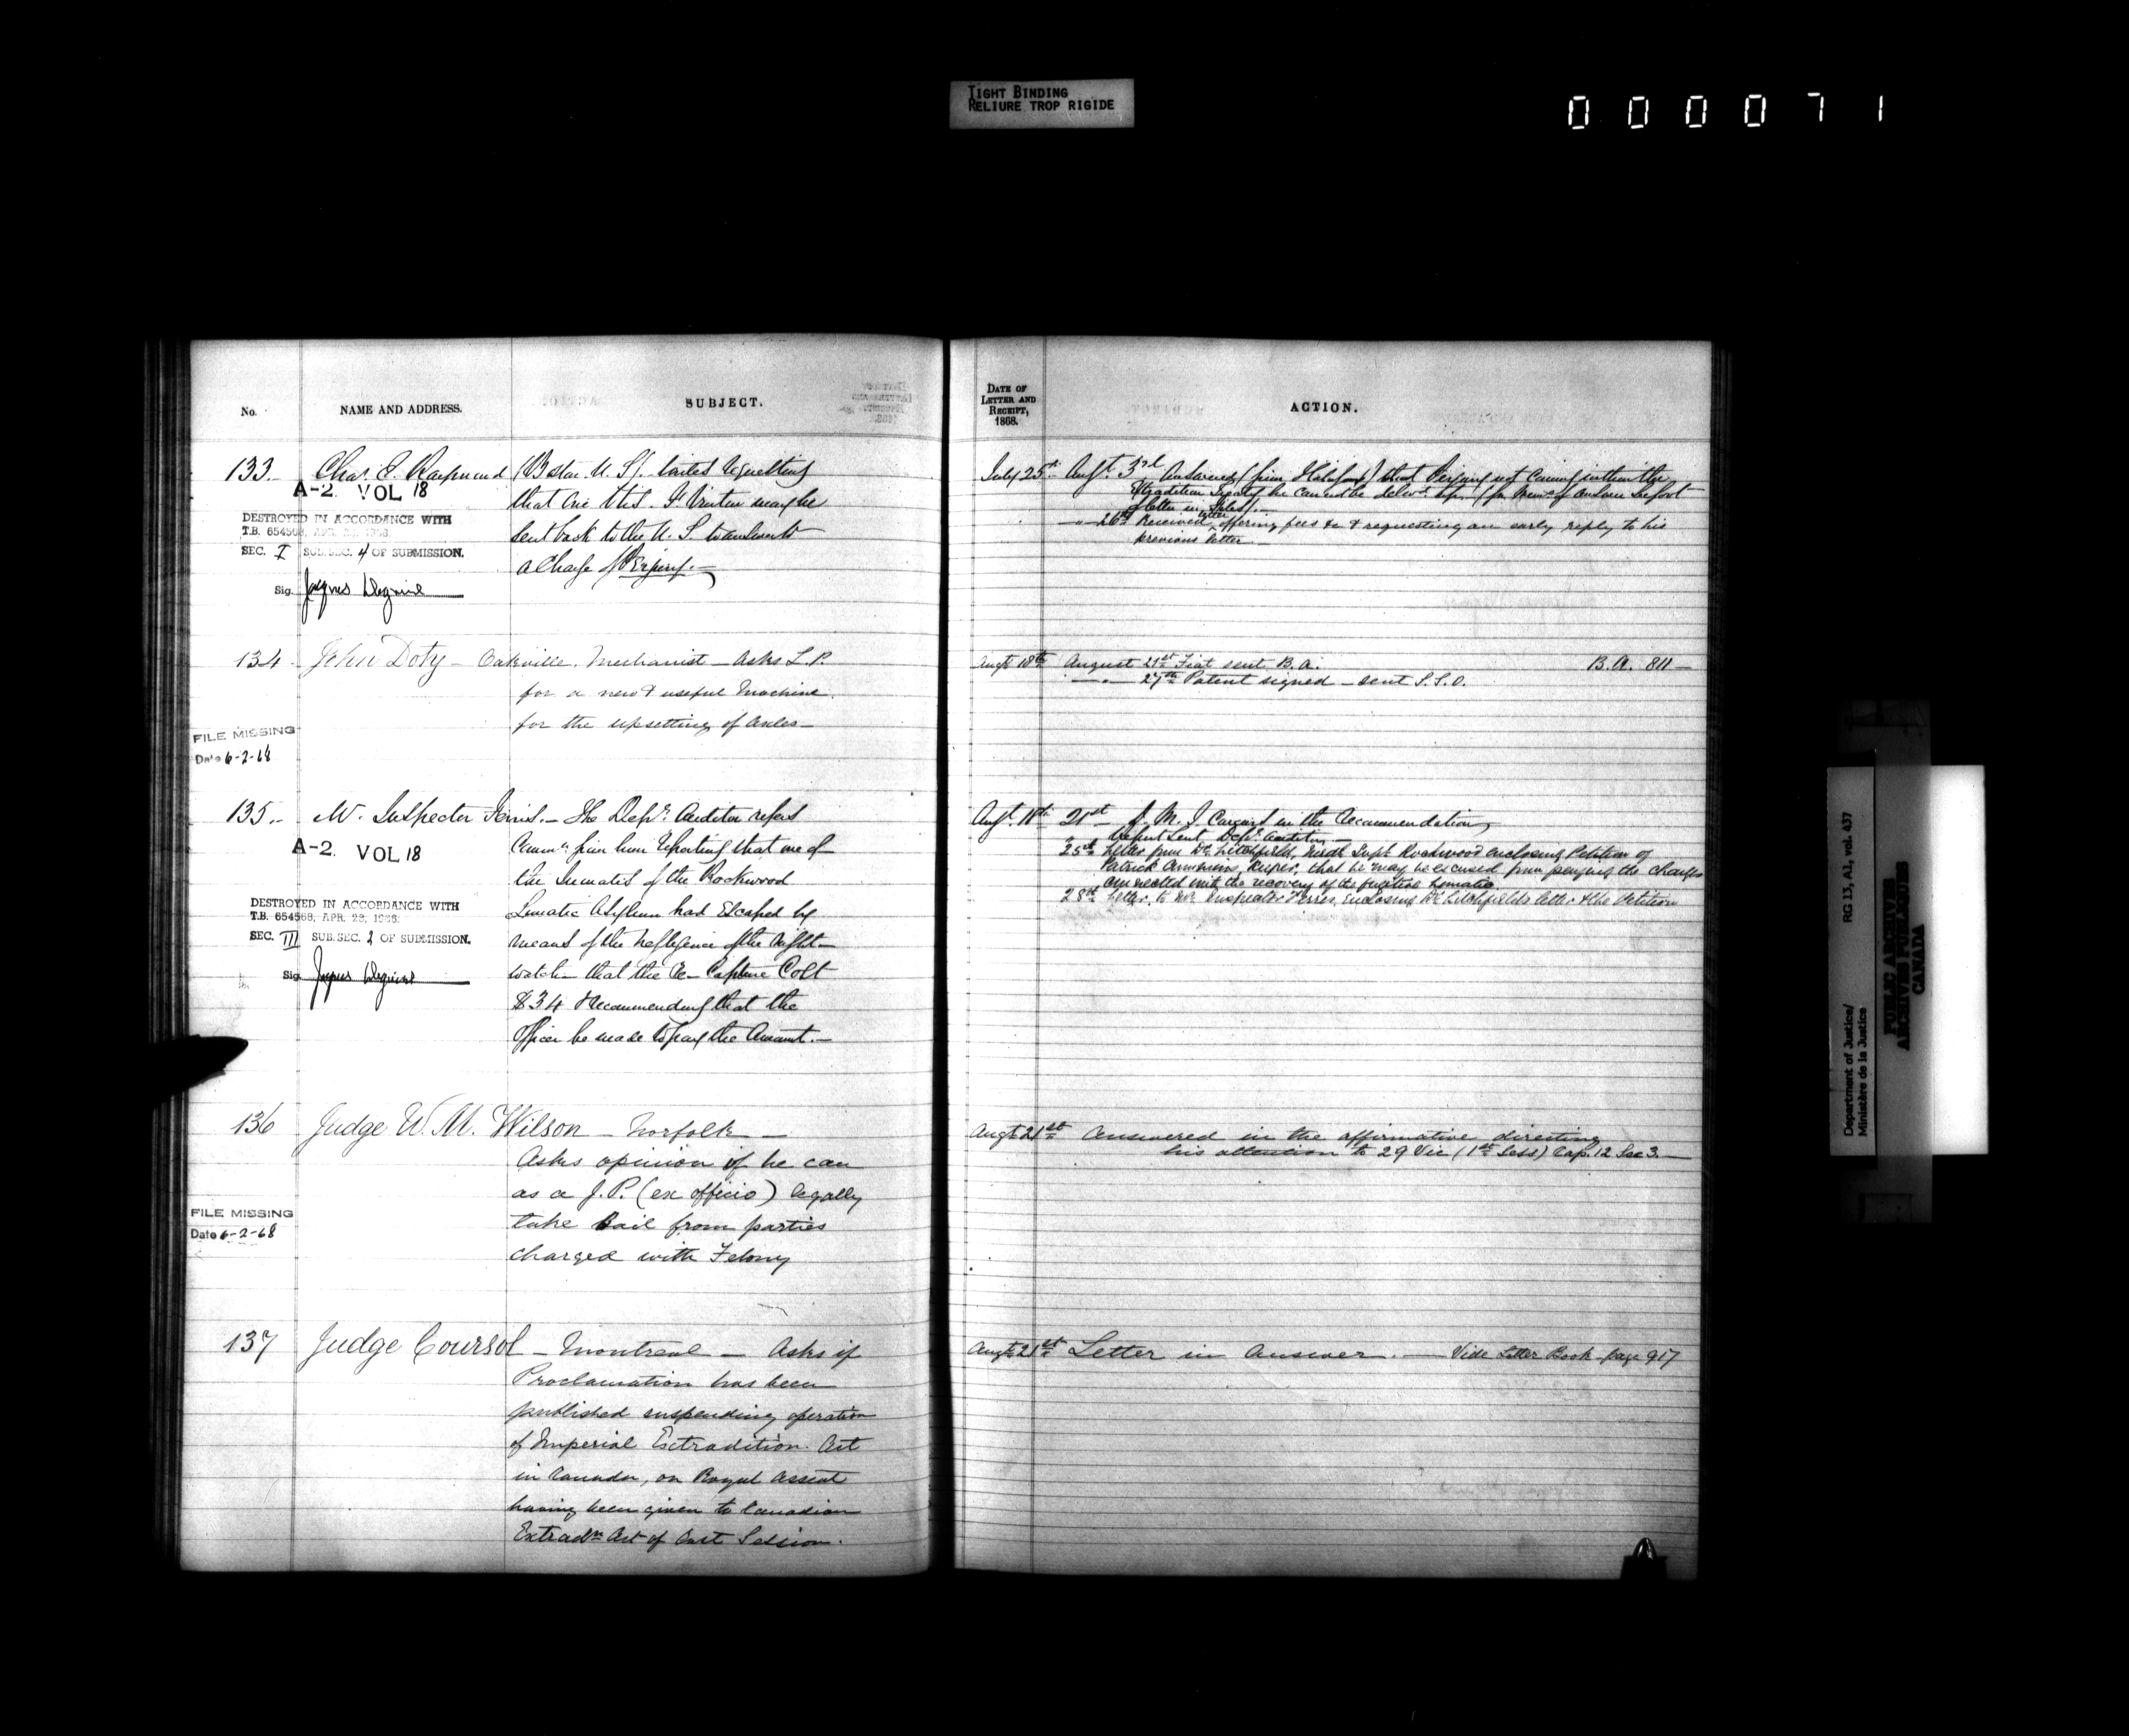 TIGHT BINDING
RELIURE TROP RIGIDE
0 0 0 0 7 1
No.
NAME AND ADDRESS.
SUBJECT.
133. Chas. E. Raymond (Boston U.S.) writes requesting
that one Otis. F. may be
sent back to the U.S. to answer to
a Charge of Perjury.—
A-2. VOL 18
DESTROYED IN ACCORDANCE WITH
T.B. 654568, APR. 28, 1966.
SEC. I SUB.SEC. 4 OF SUBMISSION.
Sig. Jacques
134 - John Doty - Oakville. Mechanist - Asks L.P.
for a new & useful Machine
for the upsetting of Axles -
FILE MISSING
Date 6-2-68
135. - Mr. Inspector Ferris. - The Depy. Auditor refers
Commn. from him reporting that one of
the Inmates of the Rockwood
Lunatic Asylum had Escaped by
means of the negligence of the night-
watch - that the Re-Capture Cost
$34 & recommending that the
Officer be made to pay the Amount. -
A-2. VOL 18
DESTROYED IN ACCORDANCE WITH
T.B. 654568, APR. 28, 1966.
SEC. III SUB.SEC. 2 OF SUBMISSION.
Sig. Jacques
136 Judge W. M. Wilson - Norfolk -
Asks opinion if he can
as a J.P. (ex officio) legally
take bail from parties
charged with Felony
FILE MISSING
Date 6-2-68
137 Judge Coursol - Montreal - Asks if
Proclamation has been
published suspending operation
of Imperial Extradition Act
in Canada, on Royal Assent
having been given to Canadian
Extradn. Act of last Session.
DATE OF
LETTER AND
RECEIPT,
1868.
ACTION.
July 25th Augt. 3rd Answered (from Halifax) that Perjury not coming within the
Extradition Treaty he cannot be (for Memo of answer see foot
of letter in Files). -
" 26th Received letter offering fees &c & requesting an early reply to his
previous letter -
Augt 18th August 21st Fiat sent B.A. B.A. 811 -
— " — 27th Patent signed - sent S.S.O.
Augt. 18th 21st - J. M. J Concurs in the recommendation
Report sent Depy. Auditor. -
25th Letter from Dr. Litchfield, Medl Supt. Rockwood enclosing Petition of
Patrick Keeper, that he may be excused from paying the charges
connected with the recovery of the fugitive lunatic.
28th Letter to Mr. Inspector Ferres, enclosing Dr. Litchfields letter & the Petition
Augt 21st Answered in the affirmative directing
his attention to 29 Vic (1st Sess) Cap. 12 Sec 3. -
Augt 21st Letter in Answer. — Vide Letter Book page 917
Department of Justice/
Ministère de la Justice
RG 13, A1, vol. 437
PUBLIC ARCHIVES
ARCHIVES PUBLIQUES
CANADA